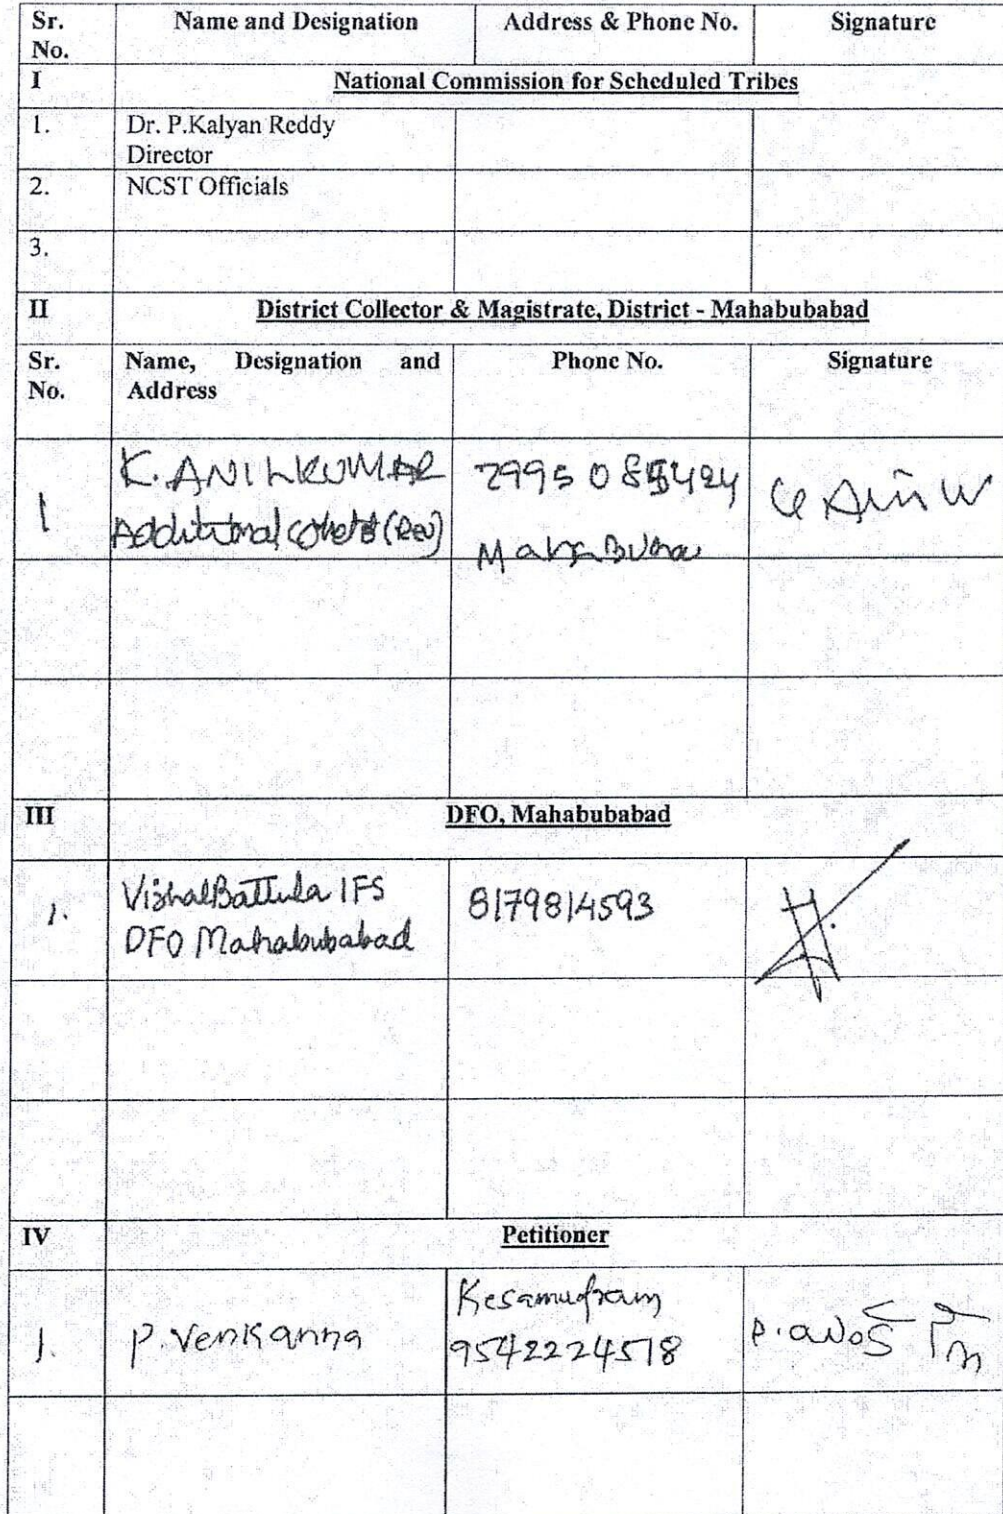 Sr. No.
Name and Designation
Address & Phone No.
Signature
I
National Commission for Scheduled Tribes
1.
Dr. P.Kalyan Reddy
Director
2.
NCST Officials
3.
II
District Collector & Magistrate, District - Mahabubabad
Sr. No.
Name, Designation and
Address
Phone No.
Signature
1
K. ANILKUMAR
Additional (Rev)
III
DFO, Mahabubabad
1.
Vishal Battula IFS
DFO Mahabubabad
8179814593
IV
Petitioner
1.
P. Venkanna
Kesamudram
9542224518